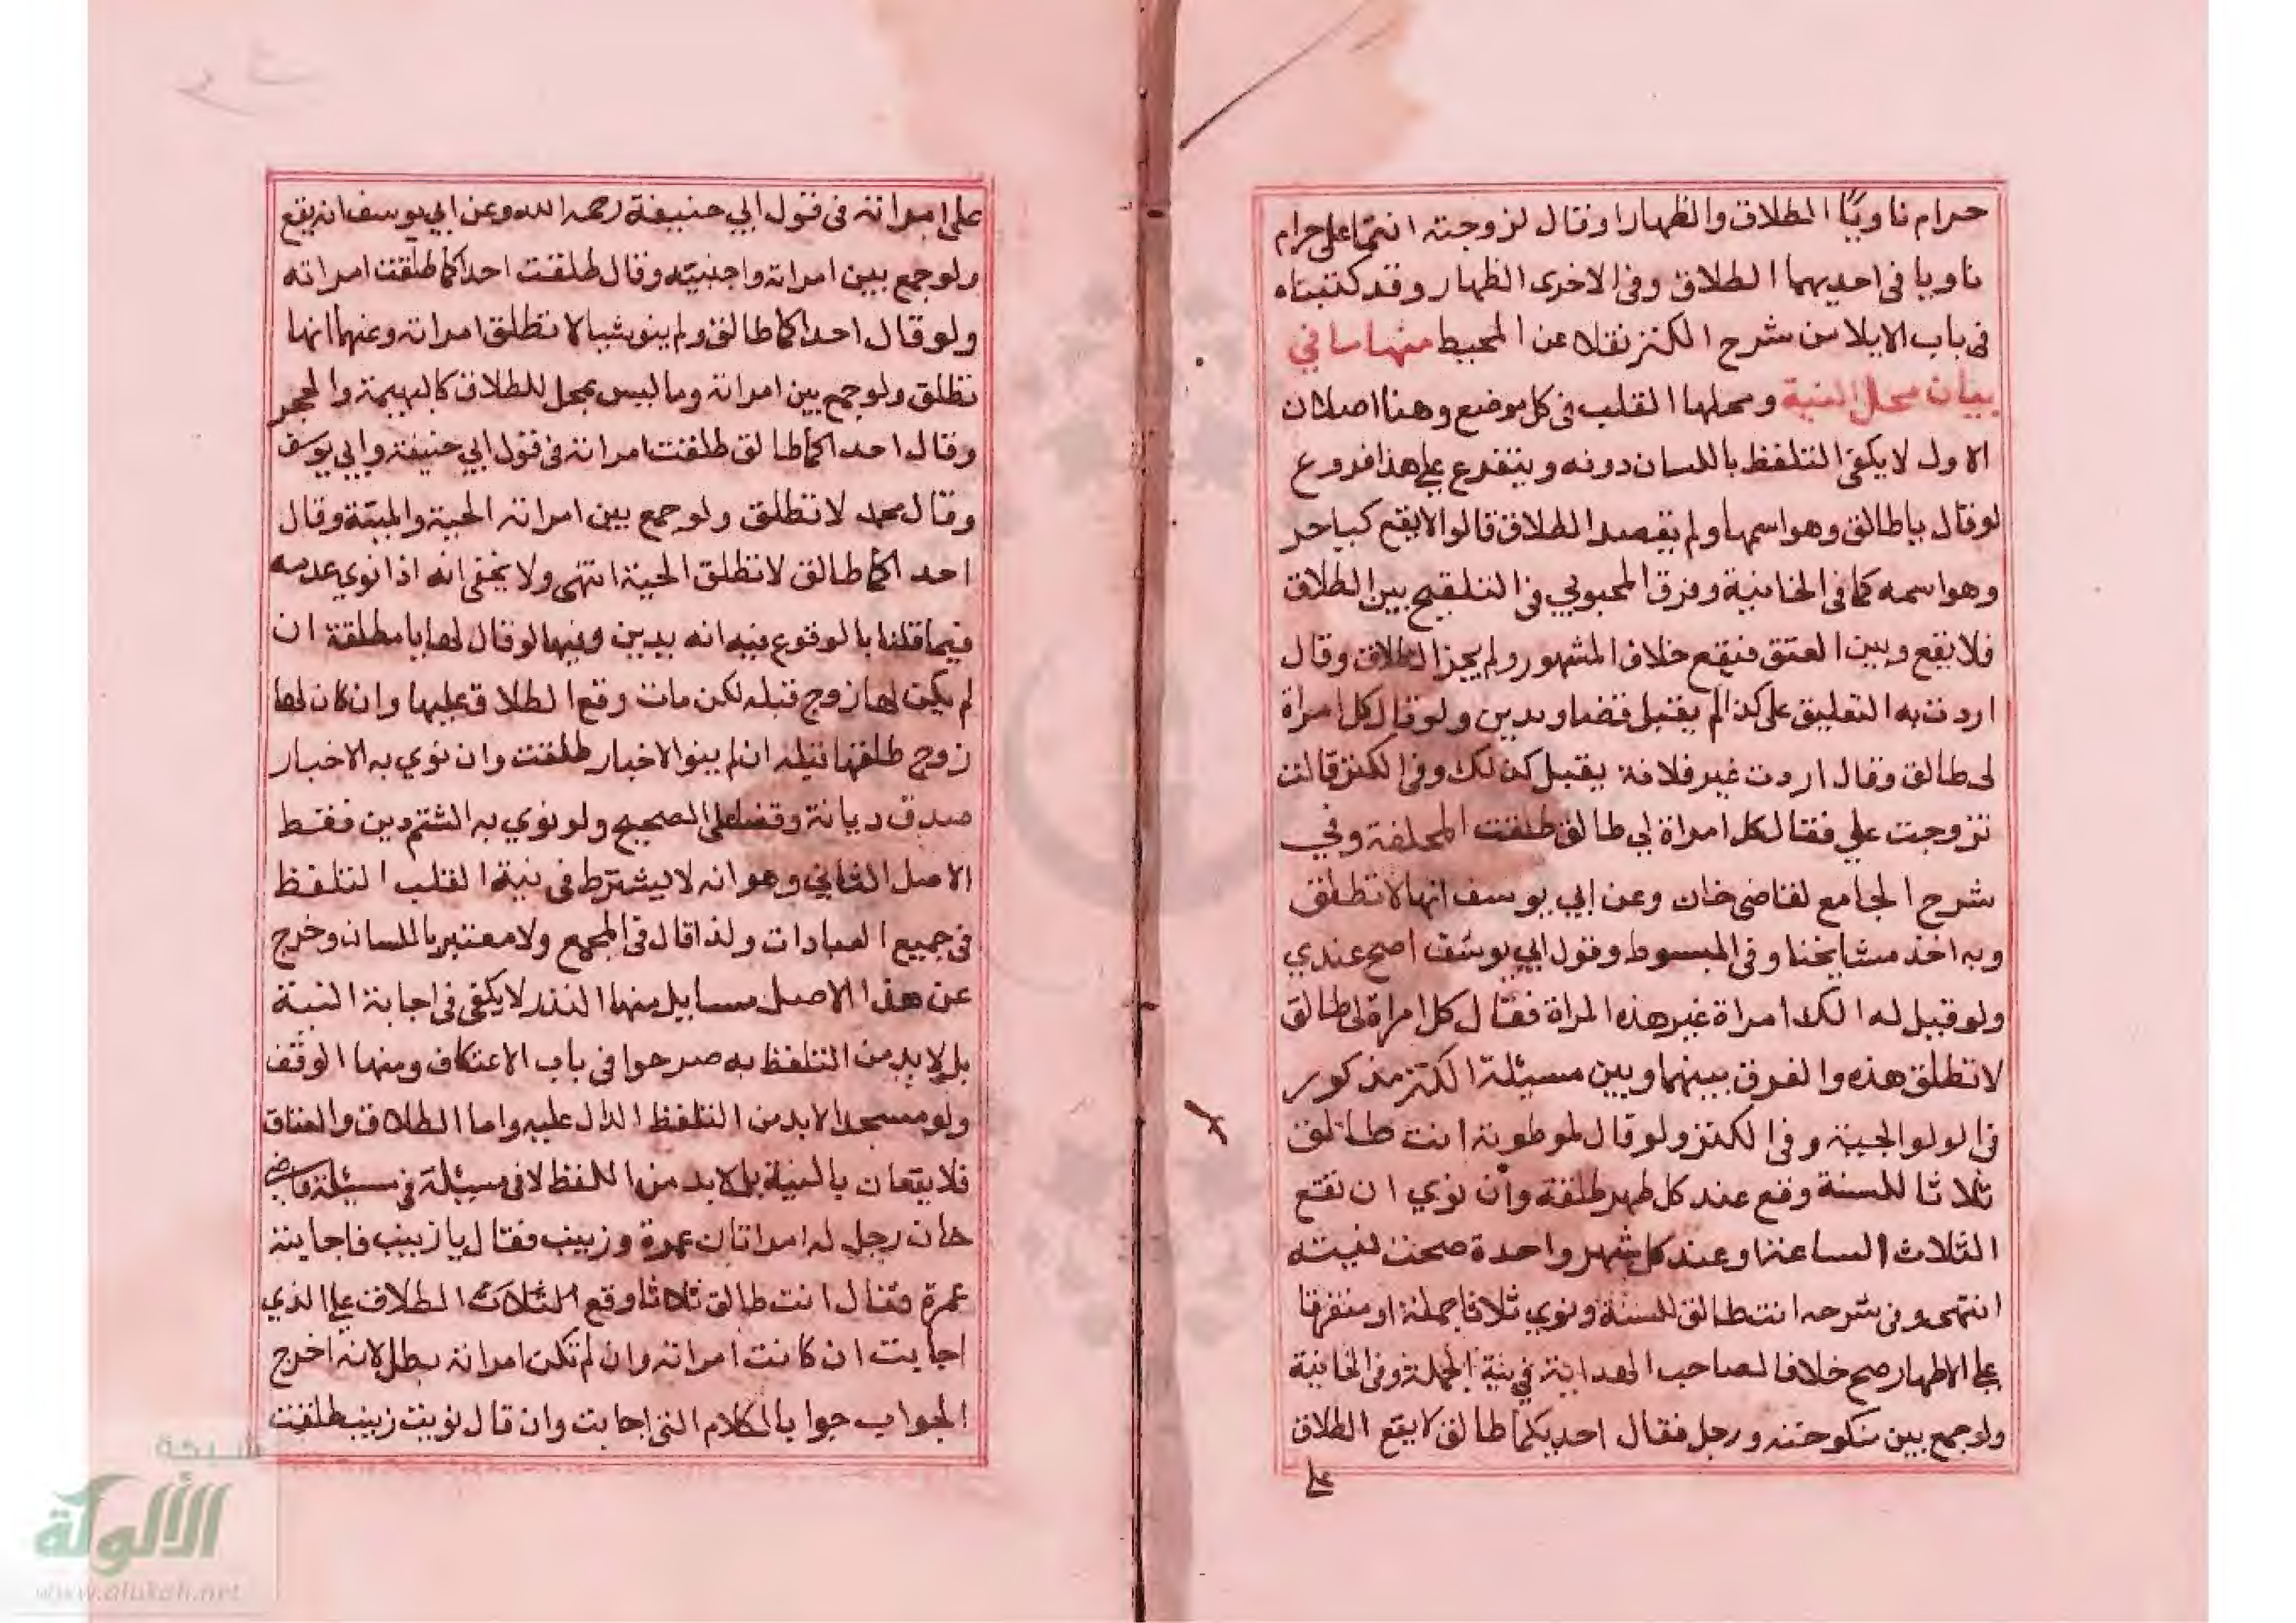 حرام ناويًا الطلاق والظهار او قال لزوجته انتما على حرام
ناويا في احديهما الطلاق وفي الاخرى الظهار وقد كتبناه
في باب الايلا من شرح الكنز نقلا عن المحيط منها سا في
بيان محل النية ومحلها القلب في كل موضع وهنا اصلان
الاول لا يكفي التلفظ باللسان دونه ويتفرع على هذا فروع
لو قال يا طالق وهو اسمها ولم يقصد الطلاق قالوا لا يقع كيا حر
وهو اسمه كما في الخانية وفرق المحبوبي في التلقيح بين الطلاق
فلا يقع وبين العتق فيقع خلاف المشهور ولم يجز الطلاق وقال
اردت به التعليق على كذا لم يقبل قضا ويدين ولو قال كل امراة
لى طالق وقال اردت غير فلانة يقبل كذلك وفي الكنز قالت
تزوجت علي فقال كل امراة لي طالق طلقت المحلفة وفي
شرح الجامع لقاضى خان وعن ابي يوسف انها لا تطلق
وبه اخذ مشايخنا وفي المبسوط وقول ابي يوسف اصح عندي
ولو قيل له الك امراة غير هذه المراة فقال كل امراة لى طالق
لا تطلق هذه والفرق بينهما وبين مسيئلة الكنز مذكور
في الولوالجية وفي الكنز ولو قال لموطونة انت طالق
ثلاثا للسنة وقع عند كل طهر طلقة وان نوي ان تقع
الثلاث الساعة او عند كل شهر واحدة صحت نيته
انتهى وفي شرحه انت طالق للسنة ونوي ثلاثا جملة او متفرقا
على الاطهار صح خلافا لصاحب الهداية في نية الجملة وفي الخانية
ولو جمع بين منكوحته ورجل فقال احديكما طالق لا يقع الطلاق
على
على امراته في قول ابي حنيفة رحمه الله وعن ابي يوسف انه يقع
ولو جمع بين امراته واجنبيته وقال طلقت احداكما طلقت امراته
ولو قال احداكما طالق ولم ينو شيا لا تطلق امراته وعنهما انها
تطلق ولو جمع بين امراته وما ليس بمحل للطلاق كالبهيمة والحجر
وقال احداكما طالق طلقت امراته في قول ابي حنيفة وابي يوسف
وقال محمد لا تطلق ولو جمع بين امراته الحية والميتة وقال
احداكما طالق لا تطلق الحية انتهى ولا يخفى انه اذا نوي عدمه
فيما قلنا بالوقوع فيه انه يدين وفيها لو قال لها يا مطلقة ان
لم يكن لها زوج قبله لكن مات وقع الطلاق عليها وان كان لها
زوج طلقها قبله ان لم ينو الاخبار طلقت وان نوي به الاخبار
صدق ديانة وقضا على الصحيح ولو نوي به الشتم دين فقط
الاصل الثاني وهو انه لا يشترط في نية القلب التلفظ
في جميع العبادات ولذا قال في المجمع ولا معتبر باللسان وخرج
عن هذا الاصل مسايل منها النذر لا يكفي في اجابة النية
بل لابد من التلفظ به صرحوا في باب الاعتكاف ومنها الوقف
ولو مسجدا لابد من التلفظ الدال عليه واما الطلاق والعتاق
فلا يقعان بالنية بل لابد من اللفظ لا في مسيئلة في مسيئلة قاضي
خان رجل له امراتان عمرة وزينب فقال يا زينب فاجابته
عمرة فقال انت طالق ثلاثا وقع الثلاث الطلاق على الذي
اجابت ان كانت امراته وان لم تكن امراته بطل لانه اخرج
الجواب جوابا لكلام التي اجابت وان قال نويت زينب طلقت
شبكة
الألوكة
www.alukah.net